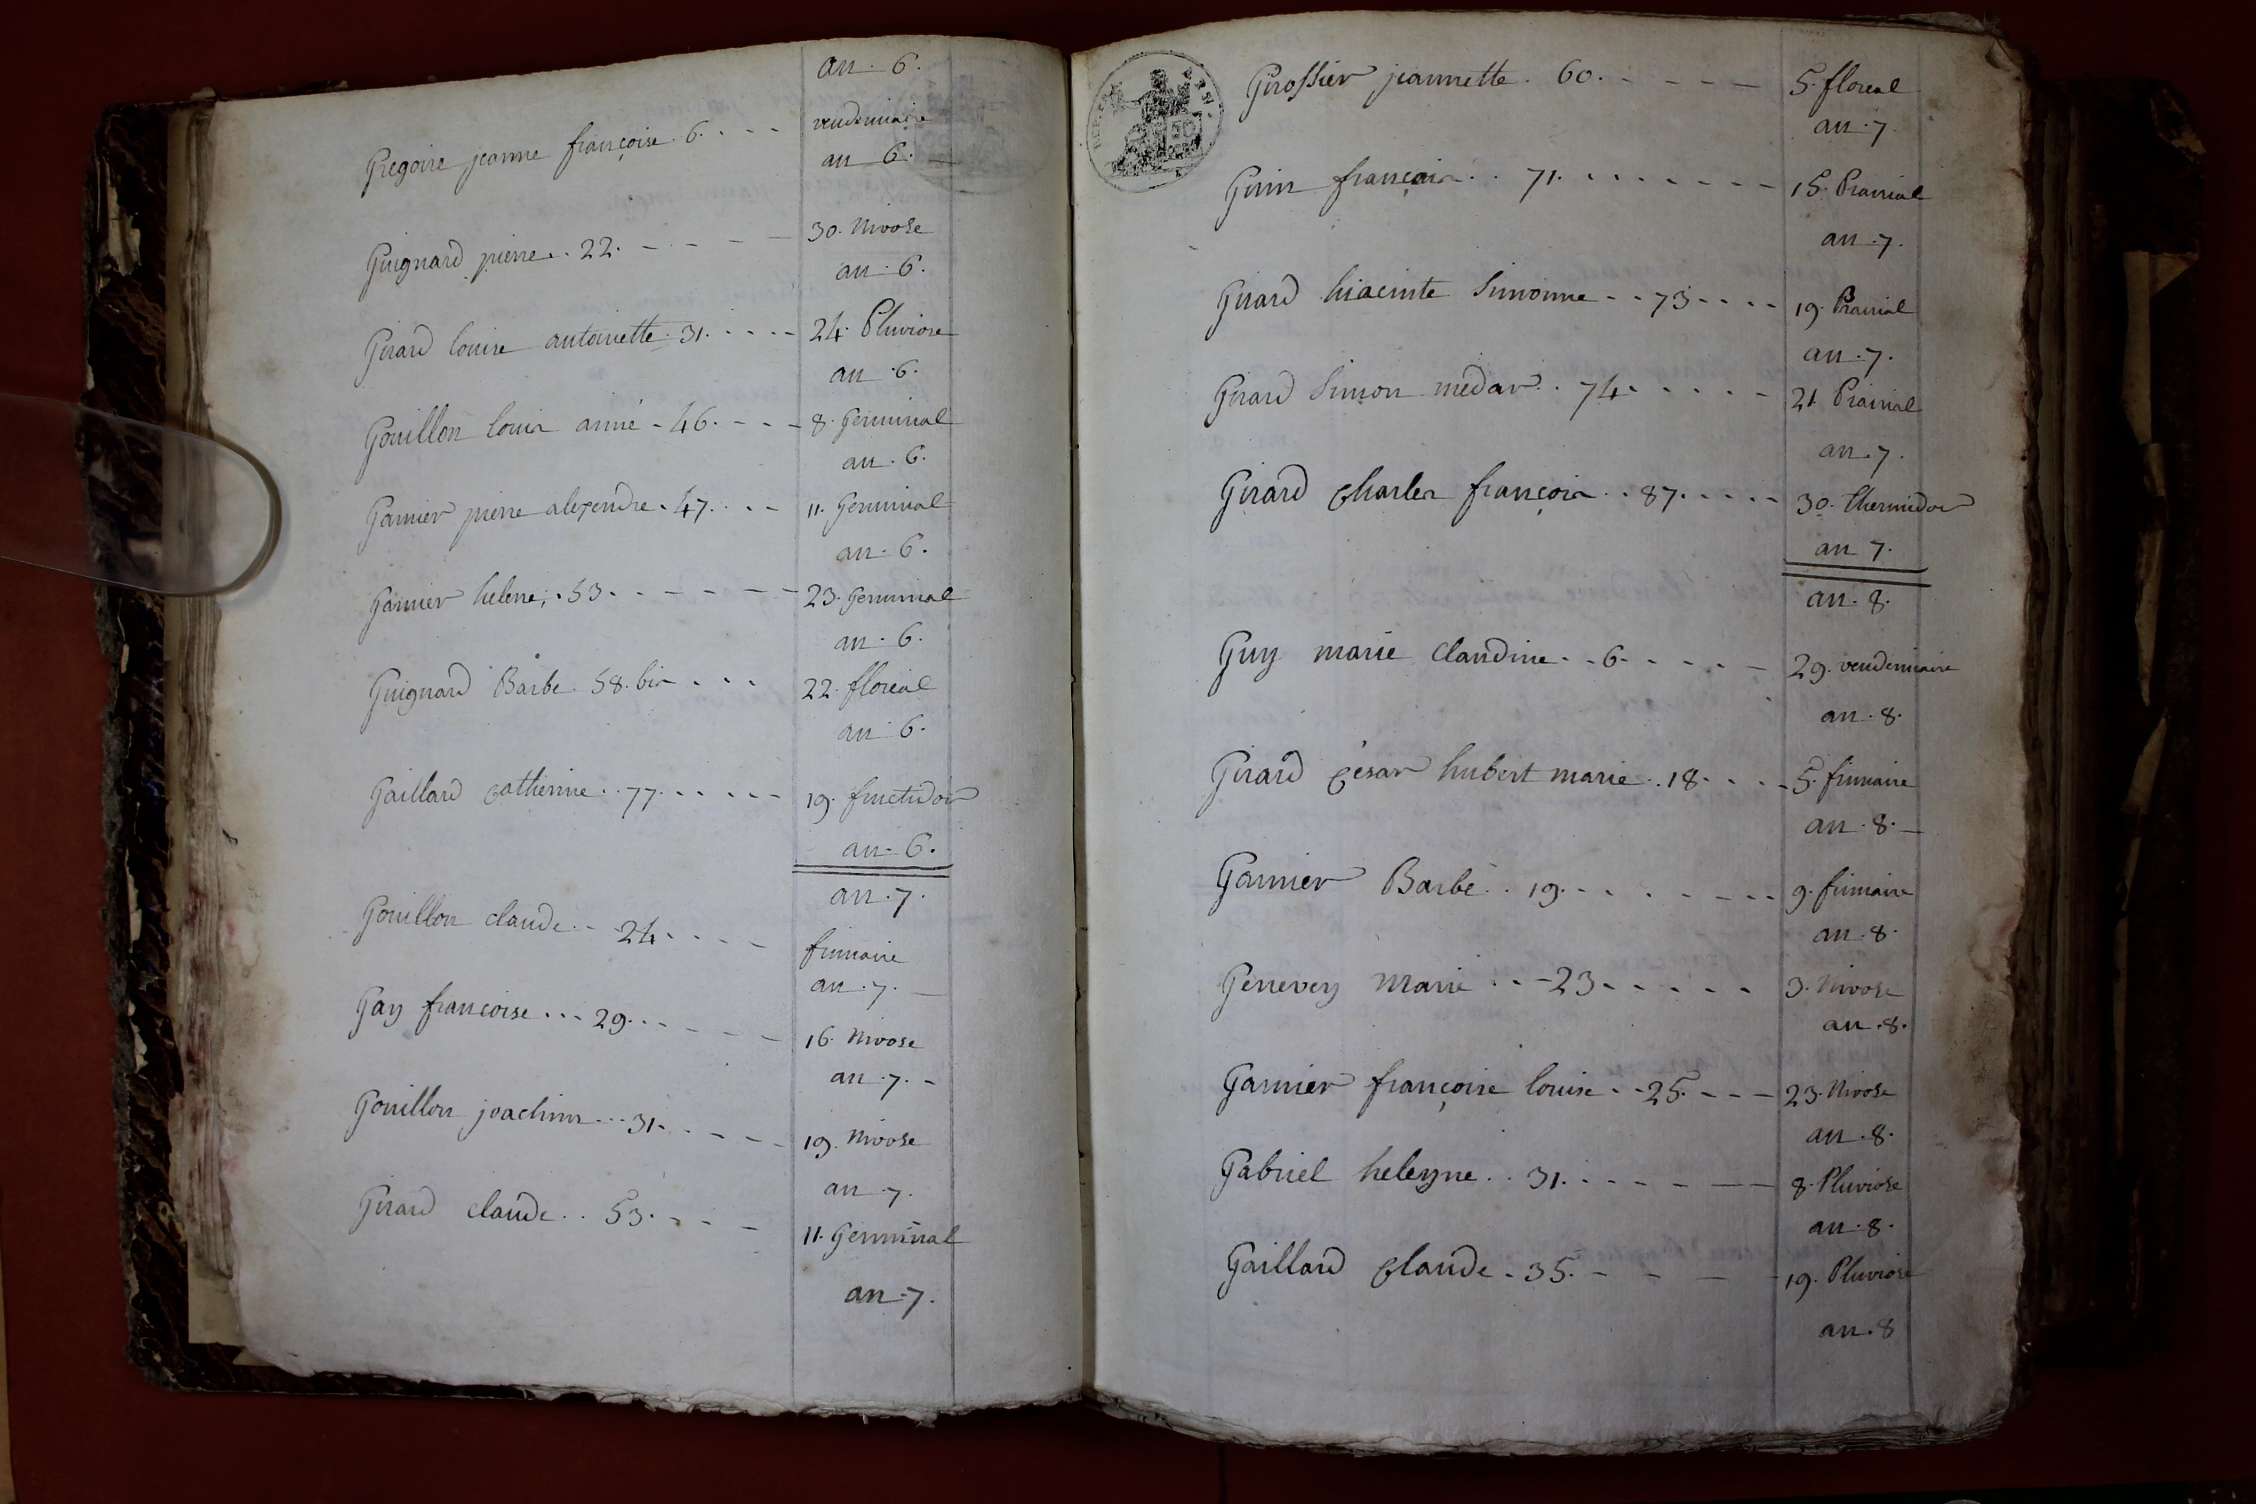 an 6.
Gregoire jeanne françoise 6. vendemiaire
an 6.
Guignard pierre. 22. 30. Nivose
an. 6.
Girard louise antoinette. 31. 24. Pluviose
an. 6.
Gouillon louis aimé - 46. 8. Germinal
an. 6.
Garnier pierre alexendre. 47. 11. Germinal
an. 6.
Garnier helene, . 53. 23. Germinal
an. 6.
Guignard Barbe. 58. bis 22. floreal
an 6.
Gaillard catherine. 77. 19. fructidor
an. 6.
an. 7.
Gouillon claude. 24. frimaire
an. 7.
Gay francoise . . . 29. 16. Nivose
an. 7.
Gouillon joachim . . . 31. 19. Nivose
an 7.
Girard claude . . 53. 11. Germinal
an. 7.
REP. FRA.
50
Grossier jeannette. 60. 5. floreal
an. 7
françois . . 71. 15. Prairial
an. 7.
Girard hiacinte Simonne - - 73 19. Prairial
an. 7.
Girard Simon médar. . 74. 21 Prairial
an. 7.
Girard charles françois . . 87. 30. thermidor
an 7.
an. 8.
Guy marie claudine - - 6. 29. vendemiaire
an. 8.
Girard César hubert marie. 18. 5. frimaire
an. 8.
Garnier Barbe . . 19. 9. frimaire
an. 8.
Genevey Marie . . - 23. 3. Nivose
an. 8.
Garnier françoise louise - - 25. 23. Nivose
an. 8.
Gabriel heleyne . . 31. 8. Pluviose
an. 8.
Gaillard Claude. 35. 19. Pluviose
an. 8